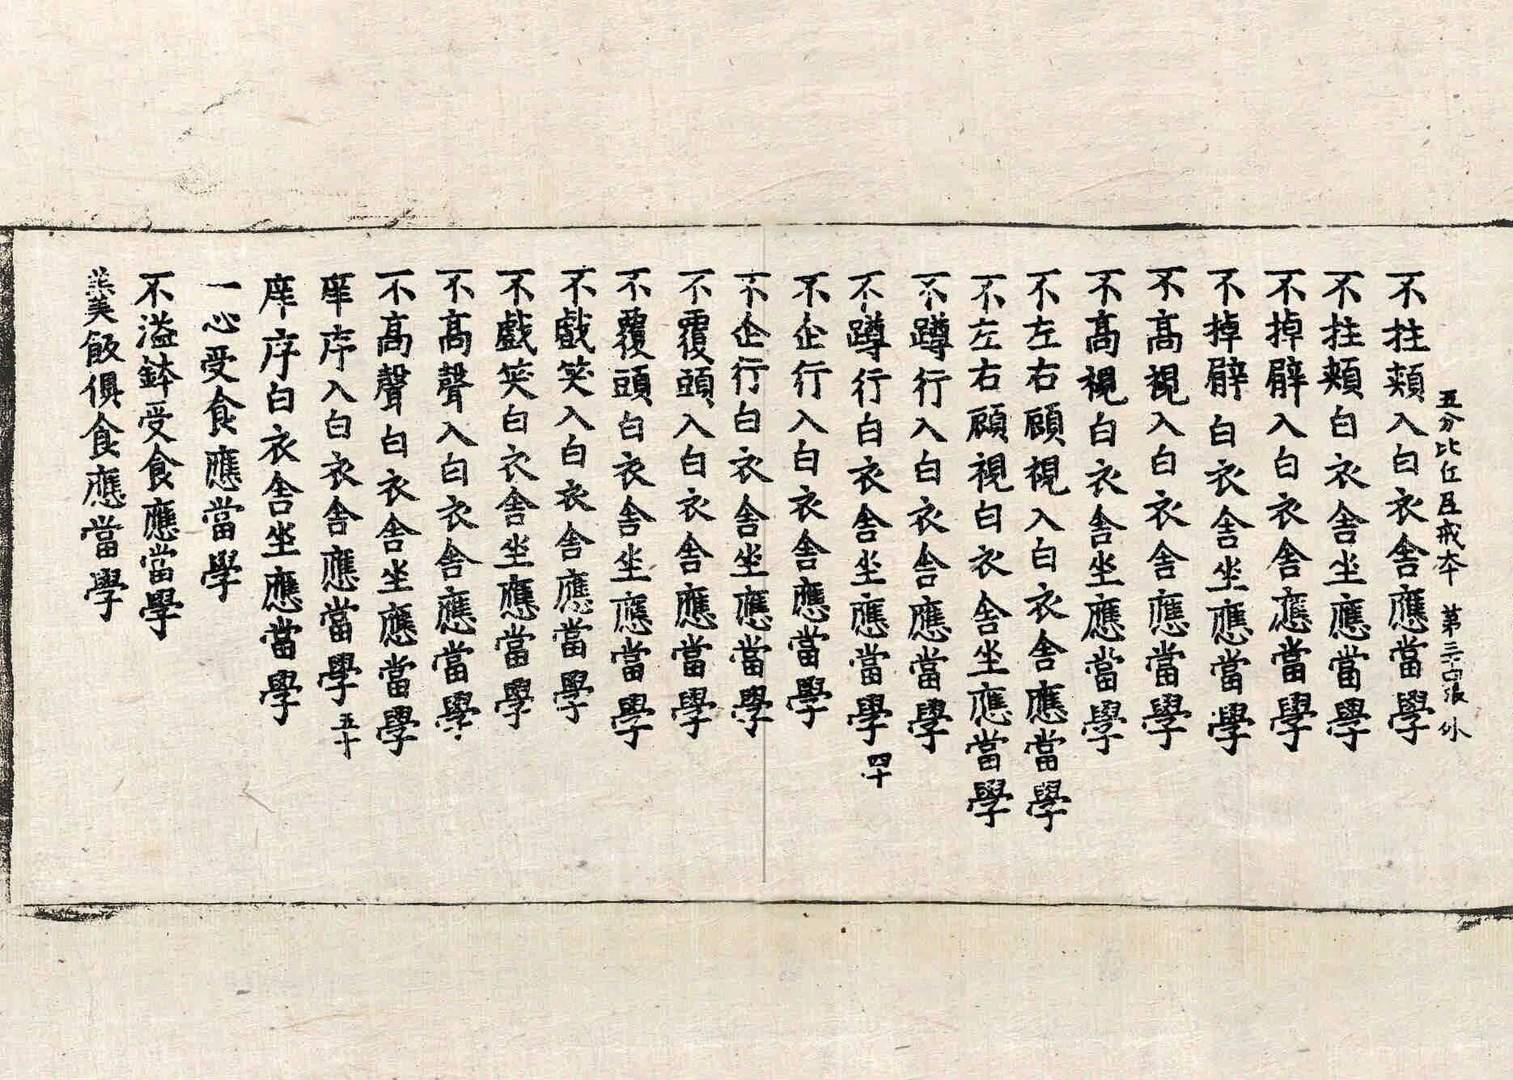 五分比丘尼戒本 第三四張 外
不拄頰入白衣舍應當學
不拄頰白衣舍坐應當學
不掉臂入白衣舍應當學
不掉臂白衣舍坐應當學
不高視入白衣舍應當學
不高視白衣舍坐應當學
不左右顧視入白衣舍應當學
不左右顧視白衣舍坐應當學
不蹲行入白衣舍應當學
不蹲行白衣舍坐應當學 四十
不企行入白衣舍應當學
不企行白衣舍坐應當學
不覆頭入白衣舍應當學
不覆頭白衣舍坐應當學
不戲笑入白衣舍應當學
不戲笑白衣舍坐應當學
不高聲入白衣舍應當學
不高聲白衣舍坐應當學
庠序入白衣舍應當學 五十
庠序白衣舍坐應當學
一心受食應當學
不溢鉢受食應當學
羹飯俱食應當學